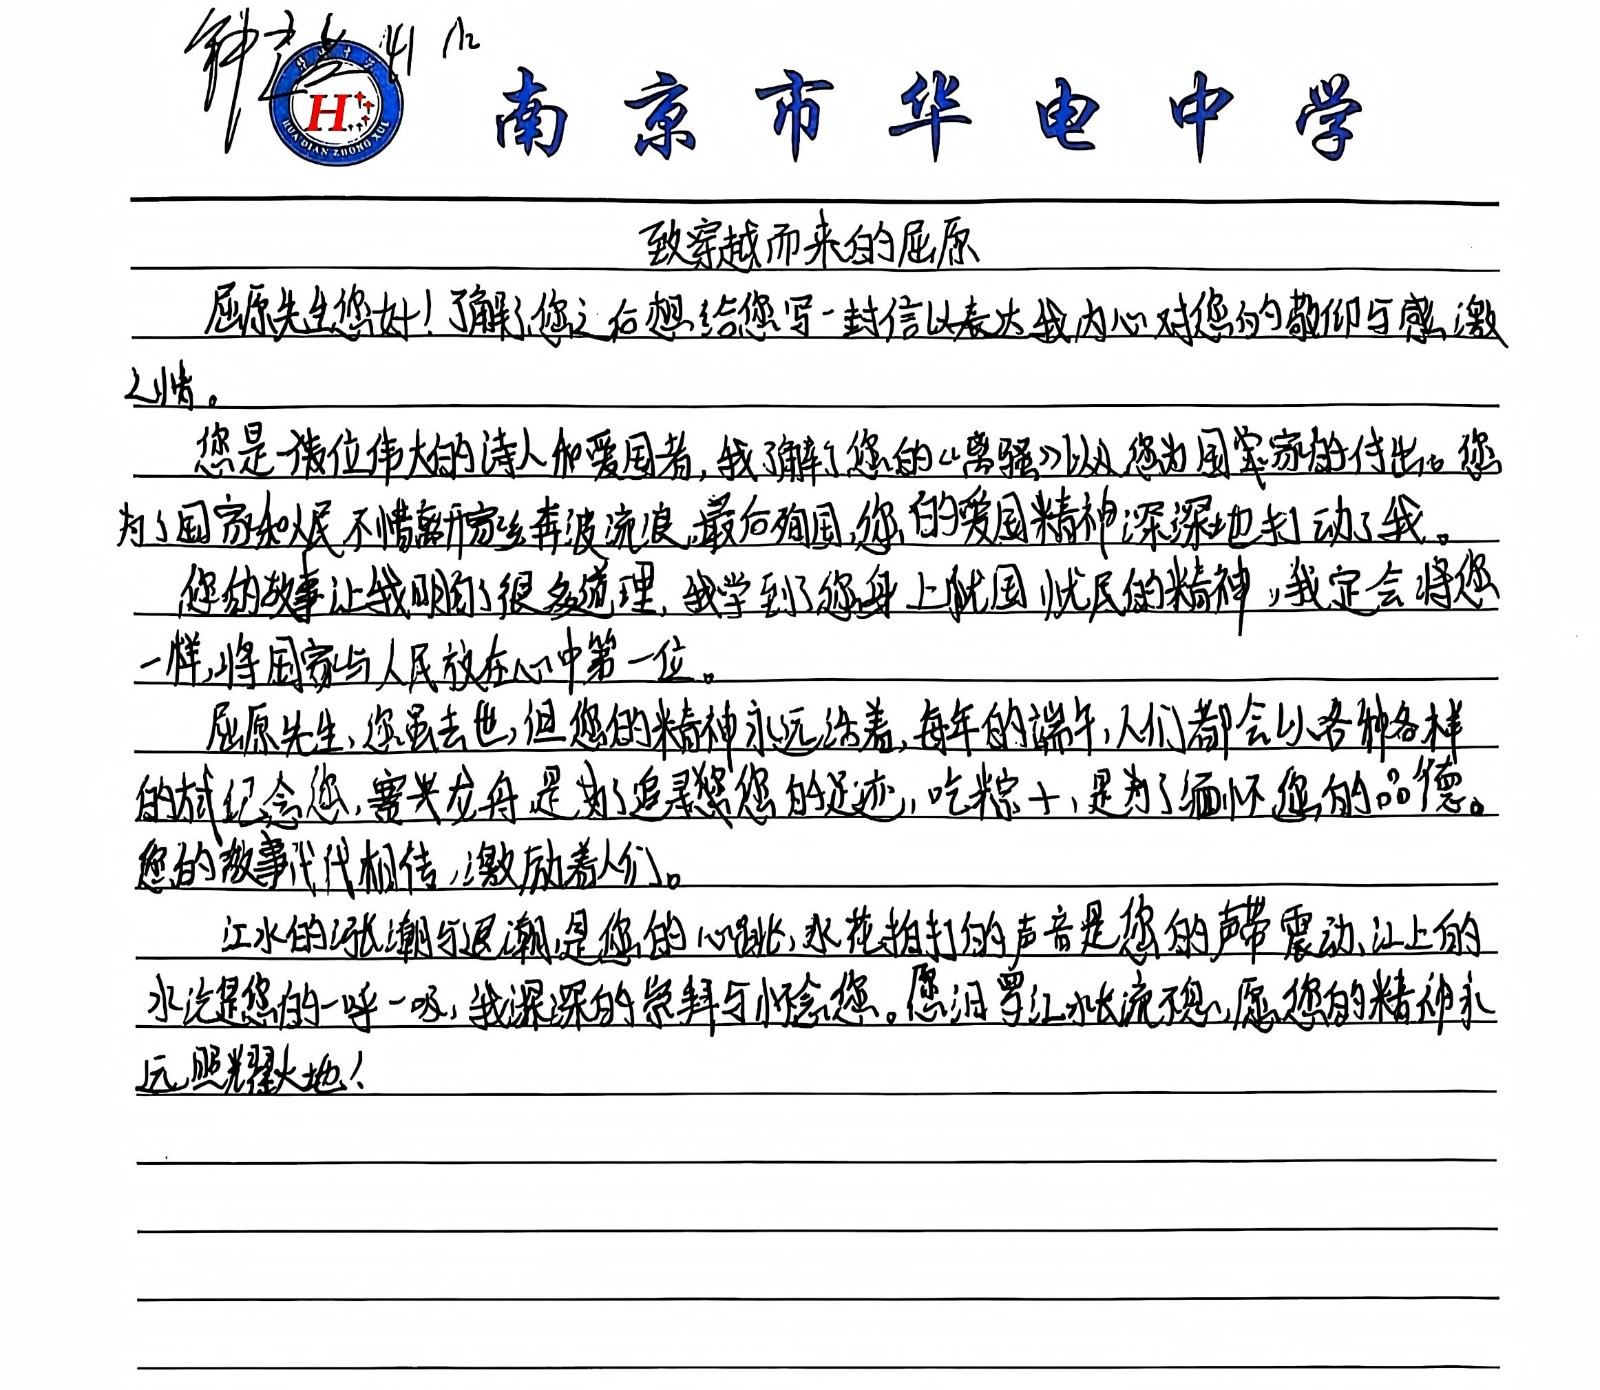 钟 41 12
南京市华电中学
HUA DIAN ZHONG XUE
H
致穿越而来的屈原
屈原先生您好！了解了您之后想给您写一封信以表达我内心对您的敬仰与感激
之情。
您是一位伟大的诗人和爱国者，我了解了您的《离骚》以及您为国家的付出。您
为了国家和人民不惜离开家乡奔波流浪，最后殉国，您的爱国精神深深地打动了我。
您的故事让我明白了很多道理，我学到了您身上忧国忧民的精神，我定会将您
一样，将国家与人民放在心中第一位。
屈原先生，您虽去世，但您的精神永远活着，每年的端午，人们都会以各种各样
的方式纪念您，赛龙舟是为了追寻您的足迹，吃粽子，是为了缅怀您的品德。
您的故事代代相传，激励着人们。
江水的涨潮与退潮，是您的心跳，水花拍打的声音是您的声带震动，江上的
水汽是您的一呼一吸，我深深的崇拜与怀念您。愿汨罗江水长流不息，愿您的精神永
远照耀大地！